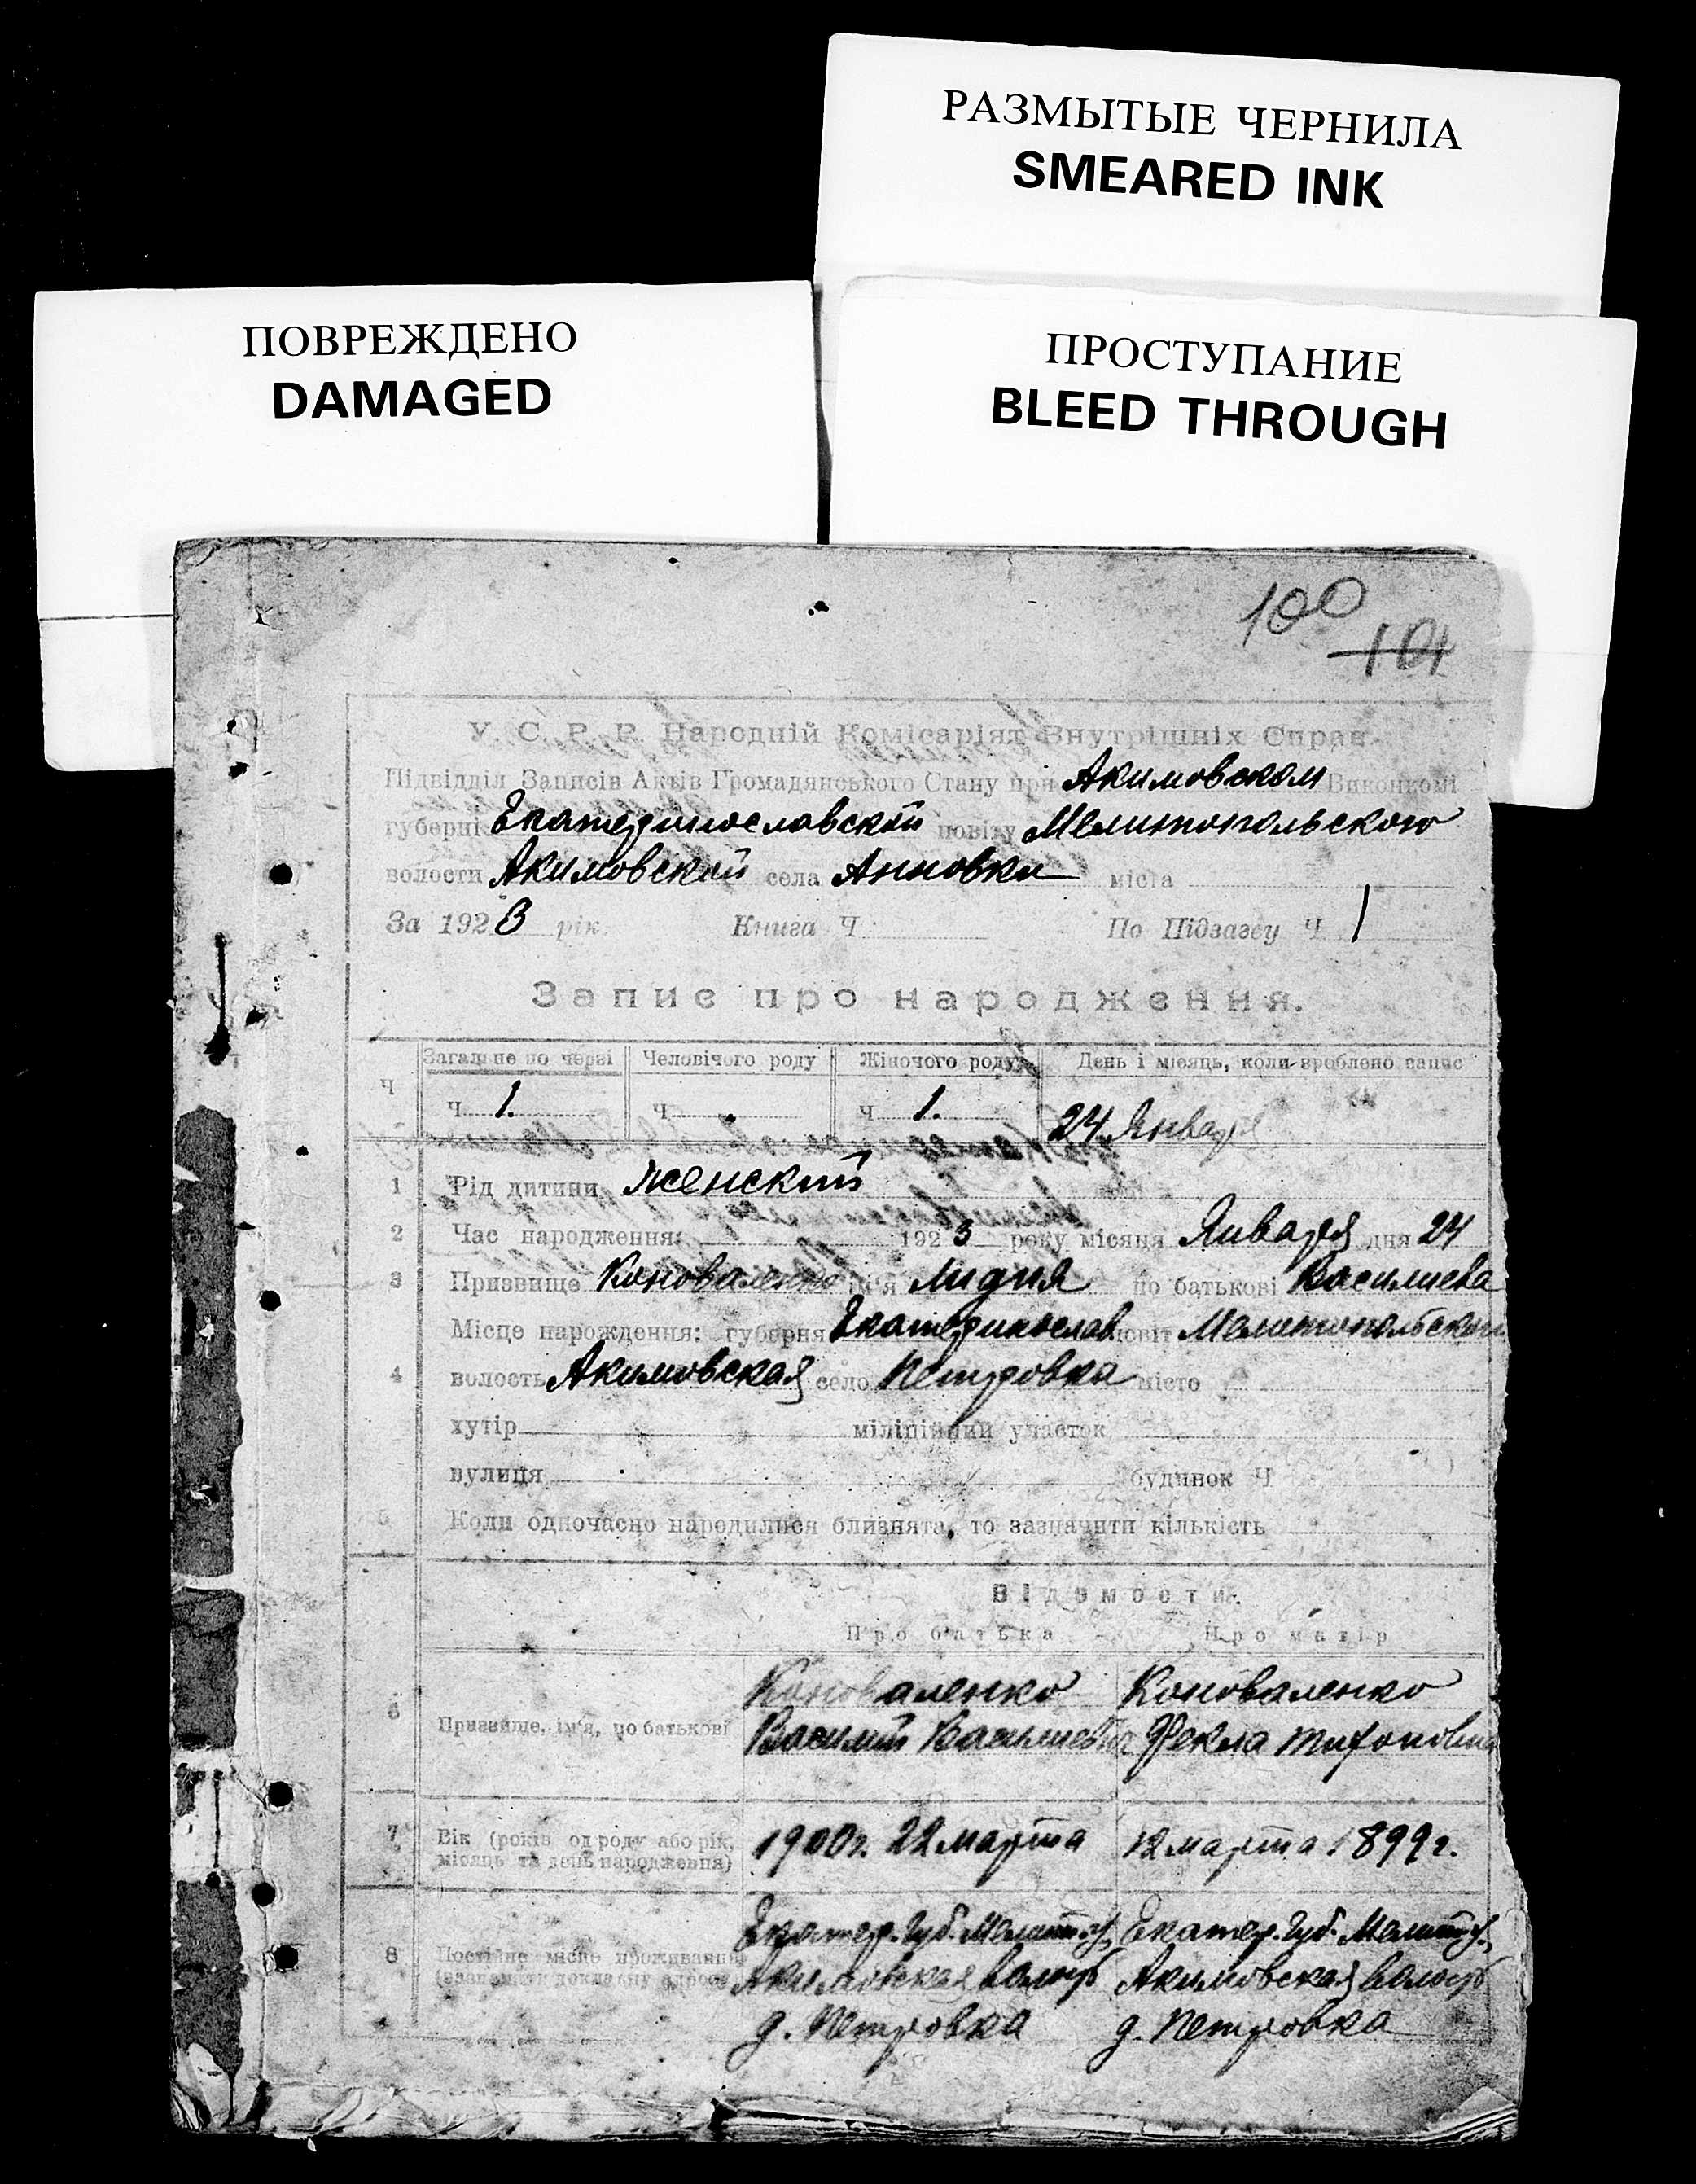 РАЗМЫТЫЕ ЧЕРНИЛА
SMEARED INK
ПОВРЕЖДЕНО
DAMAGED
ПРОСТУПАНИЕ
BLEED THROUGH
100
101
У. С. Р. Р. Народній Комісаріят Внутрішніх Справ.
Підвідділ Записів Актів Громадянського Стану при Акимовском Виконкомі
губерні Екатеринославской повіту Мелитопольского
волости Акимовской села Анновки міста
За 1923 рік. Книга Ч По Підзагсу Ч 1
Запис про народження.
Ч Загальне по черзі Человічого роду Жіночого роду День і місяць, коли зроблено запис
Ч 1. Ч Ч 1. 24 Января
1 Рід дитини женский
2 Час народження: 1923 року місяця Января дня 24
3 Призвище Коноваленко ім'я Лидия по батькові Василиева
Місце народження: губерня Екатеринослав. повіт Мелитопольский
4 волость Акимовская село Петровка місто
хутір міліційний участок
вулиця будинок Ч
5 Коли одночасно народилися близнята, то зазначити кількість
Відомости.
Про батька Про матір
Коноваленко Коноваленко
6 Призвище, ім'я, по батькові Василий Василиевич Фекла
7 Вік (років од роду або рік, 1900г. 22 марта 12 марта 1899г.
місяць та день народження)
Екатер. Губ. Мелит. у. Екатер. Губ. Мелит. у.
8 Постійне місце проживання
(зазначити докладну адресу) Акимовская волость Акимовская волость
д. Петровка д. Петровка